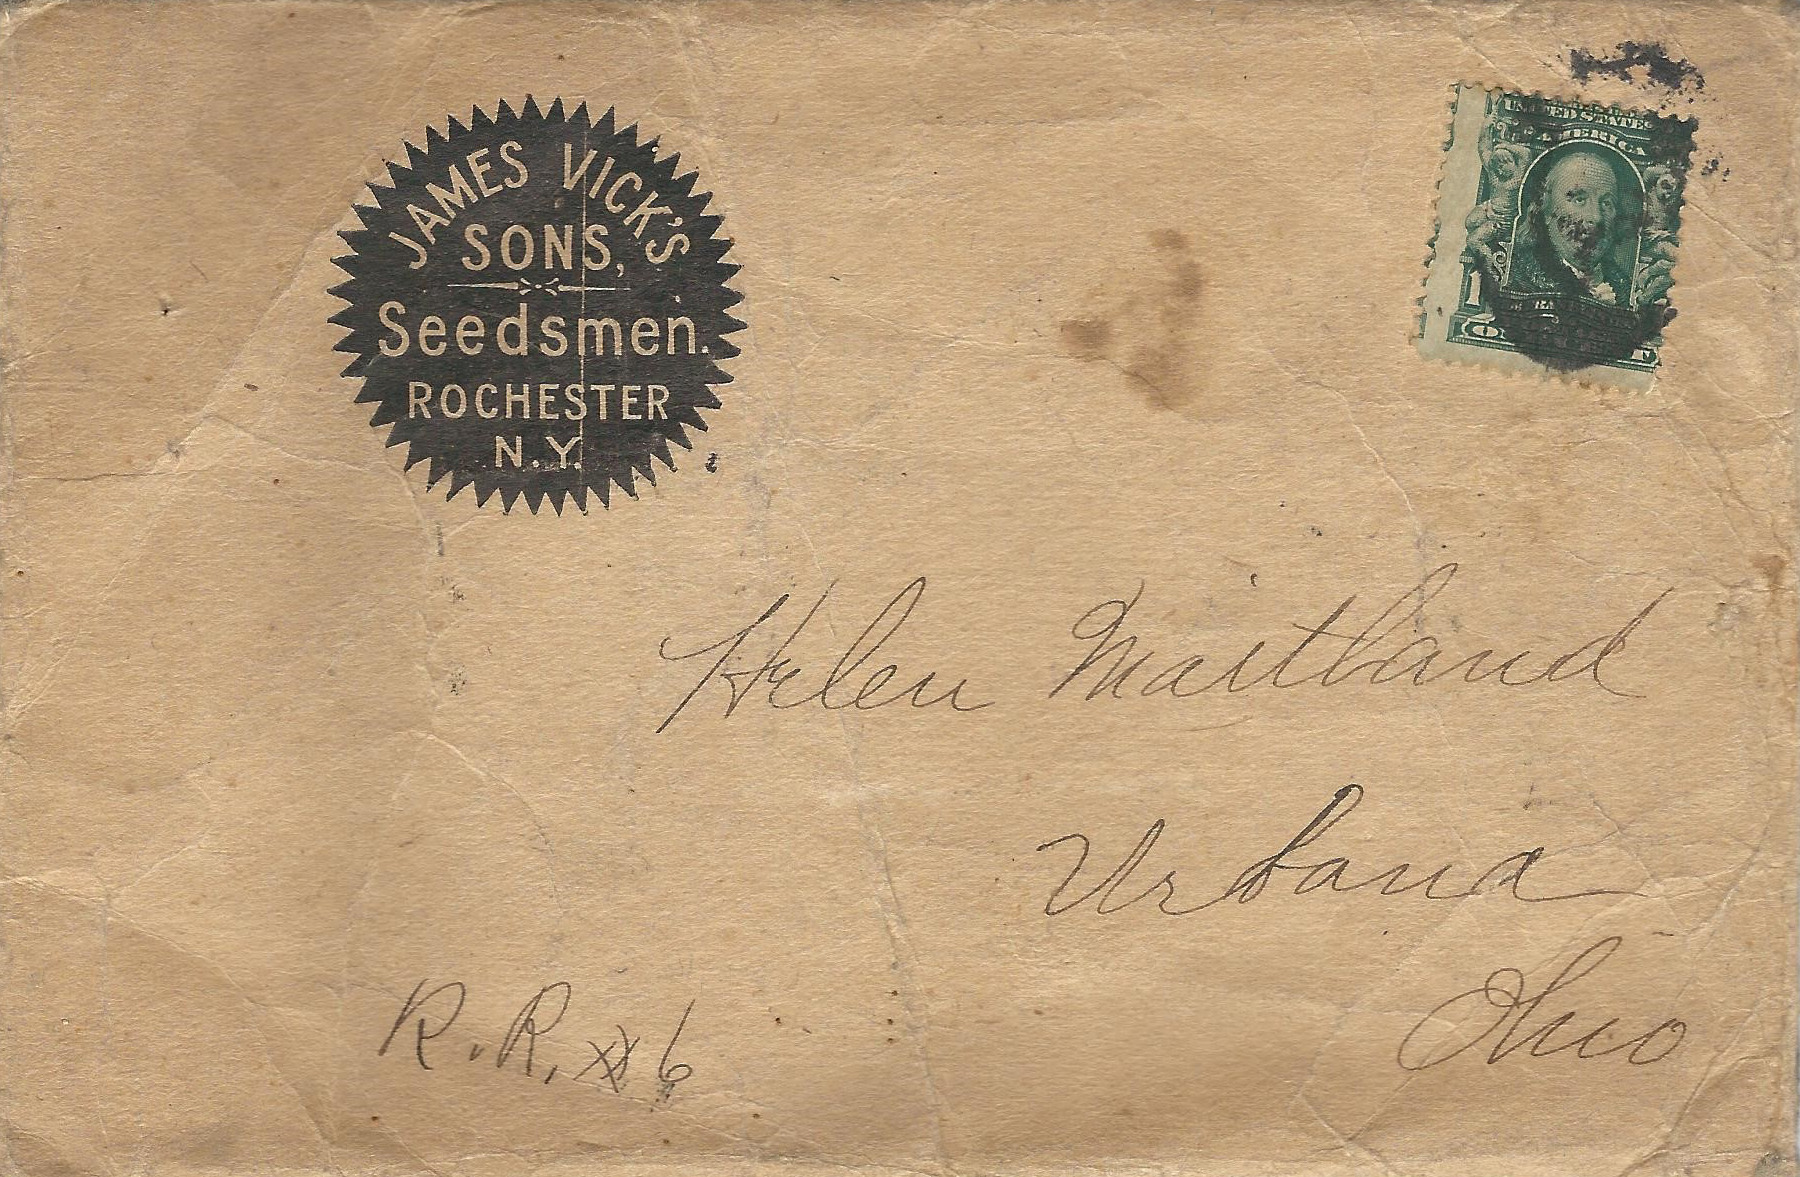 JAMES VICK'S
SONS,
Seedsmen.
ROCHESTER
N.Y.
UNITED STATES
OF AMERICA
1
Helen Maitland
Urbana
Ohio
R.R. # 6